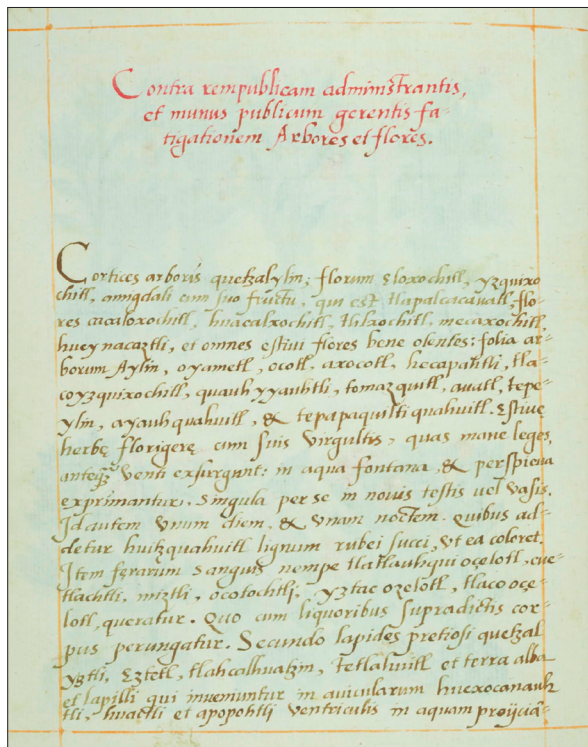 Contra rempublicam administrantis,
et munus publicum gerentis fa-
tigationem Arbores et flores.
Cortices arboris quetzalylin, florum Eloxochitl, yzquixo
chitl, amigdali cum suo fructu, qui est tlapalcacauatl, flo-
res cacaloxochitl, huacalxochitl, tlilxochitl, mecaxochitl,
huey nacaztli, et omnes estivi flores bene olentes: folia ar-
borum Aylin, oyametl, ocotl, axocotl, hecapahtli, tla-
coyzquixochitl, quauh yyauhtli, tomazquitl, auatl, tepe-
ylin, ayauhquahuitl, & tepapaquilti quahuitl. Estiuę
herbę florigerę cum suis virgultis, quas mane leges,
anteq̃ȝ venti exsurgant: in aqua fontana, & perspicua
exprimantur, singula per se in nouis testis uel vasis.
Id autem vnum diem, & vnam noctem. quibus ad-
detur huitzquahuitl lignum rubei succi, vt ea coloret.
Item fęrarum sanguis nempe tlatlauhqui oçelotl, cue-
tlachtli, miztli, ocotochtli, yztac ozelotl, tlaco oçe-
lotl, queratur. Quo cum liquoribus supradictis cor-
pus perungatur. Secundo lapides pretiosi quetzal
yztli, Eztetl, tlahcalhuatzin, Tetlahuitl et terra alba
et lapilli qui inueniuntur in auicularum huexocanauh
tli, huactli et apopohtli ventriculis in aquam proijciã-